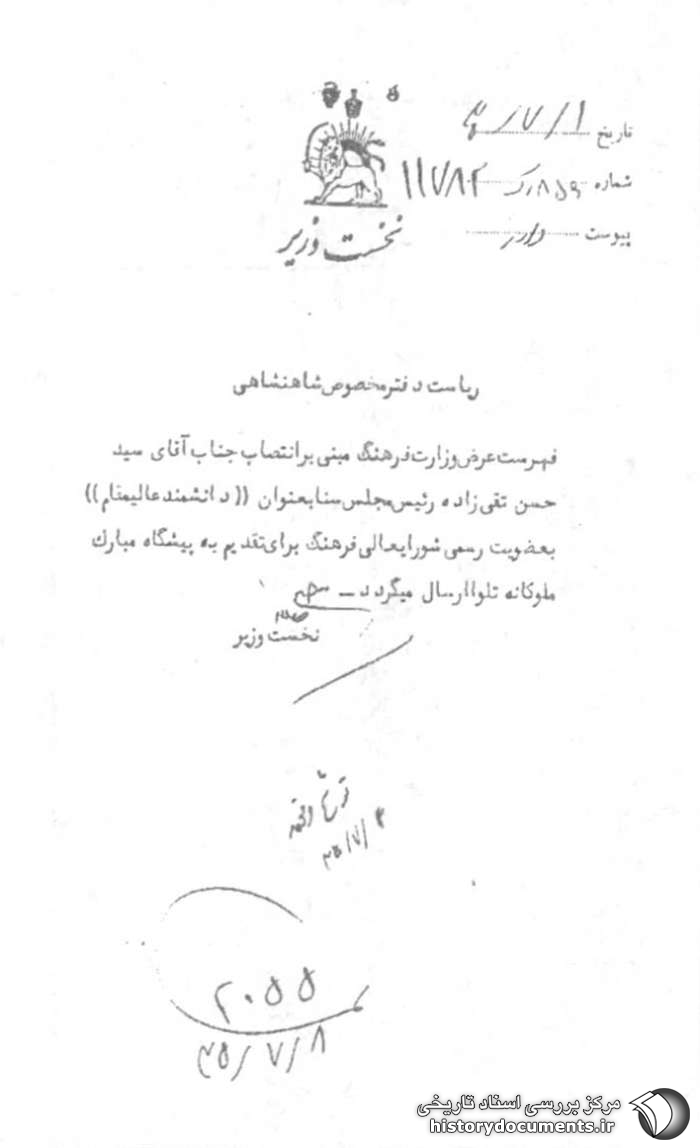 تاریخ ۱/ ۷/
شماره ۱۱۷۸۲
پیوست دارد
نخست وزیر
ریاست دفتر مخصوص شاهنشاهی
فهرست عرض وزارت فرهنگ مبنی بر انتصاب جناب آقای سید
حسن تقی زاده رئیس مجلس سنا بعنوان ((دانشمند عالیمقام))
بعضویت رسمی شورایعالی فرهنگ برای تقدیم به پیشگاه مبارک
ملوکانه تلوا ارسال میگردد ـ
نخست وزیر
۲۰۵۵
۳۵/۷/۸
مرکز بررسی اسناد تاریخی
historydocuments.ir